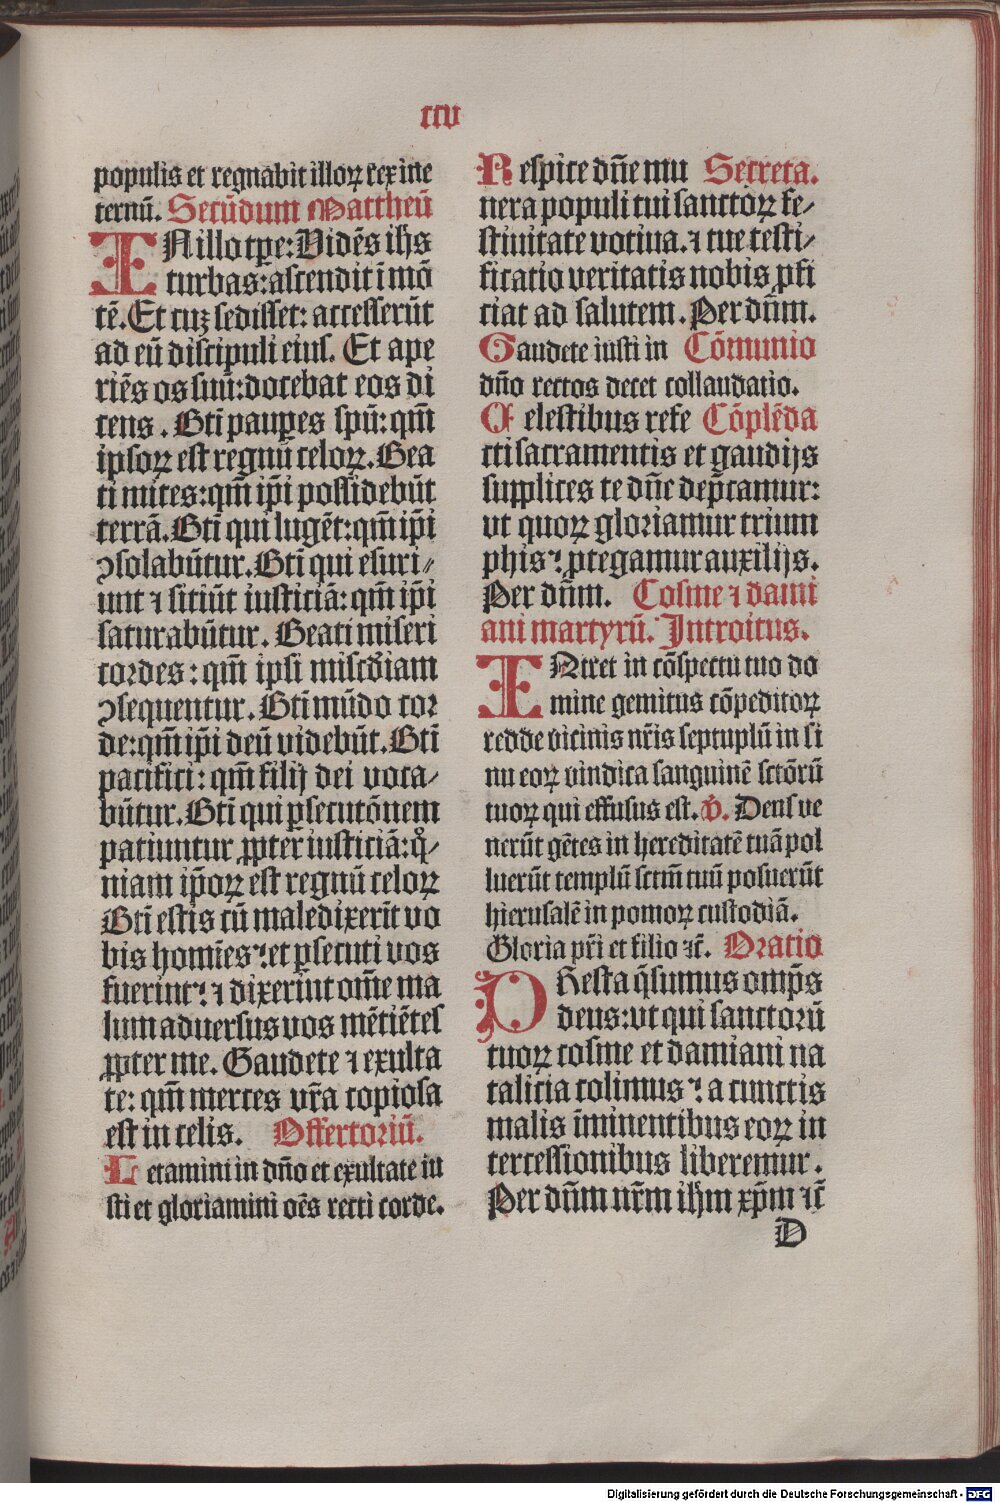 ccv
populis et regnabit illoꝝ rex ine
ternū. Secūdum Mattheū
IN illo tꝑe: Vidēs ihs
turbas: ascendit ī mō
tē. Et cuꝫ sedisset: accesserūt
ad eū discipuli eius. Et ape
riēs os suū: docebat eos di
cens. Bti paupes spū: qm̄
ipsoꝝ est regnū celoꝝ. Bea
ti mites: qm̄ ip̄i possidebūt
terrā. Bti qui lugēt: qm̄ ip̄i
ꝯsolabūtur. Bti qui esuri⸗
unt ⁊ sitiūt iusticiā: qm̄ ip̄i
saturabūtur. Beati miseri
cordes: qm̄ ipsi miscdiam
ꝯsequentur. Bti mūdo cor
de: qm̄ ip̄i deū videbūt. Bti
pacifici: qm̄ filij dei voca⸗
būtur. Bti qui ꝑsecutōnem
patiuntur ꝓpter iusticiā: qͦ⸗
niam ip̄oꝝ est regnū celoꝝ
Bti estis cū maledixerīt vo
bis homīes: et ꝑsecuti vos
fuerint: ⁊ dixerint om̄e ma
lum aduersus vos mētiētes
ꝓpter me. Gaudete ⁊ exulta
te: qm̄ merces vr̄a copiosa
est in celis. Offertoriū.
Letamini in dn̄o et exultate iu
sti et gloriamini oēs recti corde.
Respice dn̄e mu Secreta.
nera populi tui sanctoꝝ fe⸗
stiuitate votiua. ⁊ tue testi⸗
ficatio veritatis nobis ꝓfi
ciat ad salutem. Per dn̄m.
Gaudete iusti in Cōmunio
dn̄o rectos decet collaudatio.
Celestibus refe Cōplēda
cti sacramentis et gaudijs
supplices te dn̄e dep̄camur:
vt quoꝝ gloriamur trium
phis: ꝓtegamur auxilijs.
Per dn̄m. Cosme ⁊ dami
ani martyrū. Introitus.
INtret in cōspectu tuo do
mine gemitus cōpeditoꝝ
redde vicinis nr̄is septuplū in si
nu eoꝝ vindica sanguinē sctōrū
tuoꝝ qui effusus est. v̄. Deus ve
nerūt gētes in hereditatē tuā pol
luerūt templū sctm̄ tuū posuerūt
hierusalē in pomoꝝ custodiā.
Gloria pr̄i et filio ⁊c̄. Oratio
PResta q̄sumus omp̄s
deus: vt qui sanctorū
tuoꝝ cosme et damiani na
talicia colimus: a cunctis
malis īminentibus eoꝝ in
tercessionibus liberemur.
Per dn̄m nr̄m ihm xp̄m ⁊c̄
D
Digitalisierung gefördert durch die Deutsche Forschungsgemeinschaft - DFG